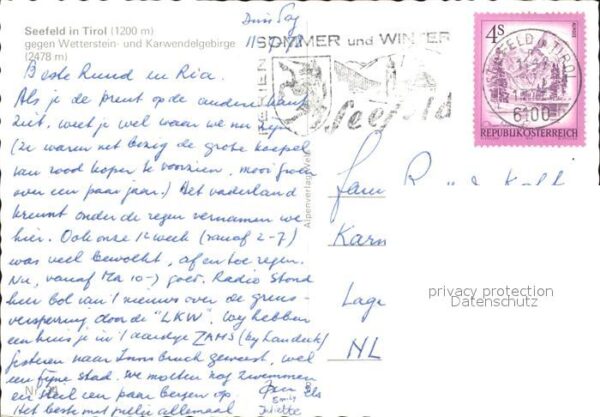 Seefeld in Tirol (1200 m)
gegen Wetterstein- und Karwendelgebirge
(2478 m)
Beste Ruud en Ria.
Als je de prent op de andere kant
ziet, weet je wel waar we nu zijn
(Ze waren net bezig de grote koepel
van rood koper te voorzien, mooi groen
over een paar jaar.) Het vaderland
kreunt onder de regen vernamen we
hier. Ook onze 1e week (vanaf 2-7)
was veel bewolkt, af en toe regen.
Nu, vanaf Ma 10-7 goed. Radio stond
hier bol van 't nieuws over de grens-
versperring door de "LKW". Wij hebben
een huisje in 't aardige ZAMS (bij Landeck)
gisteren naar Innsbruck geweest, wel
een fijne stad. We moeten nog zwemmen
en steil een paar bergen op
Het beste met jullie allemaal
Els
Emily
Juliette
SOMMER und WINTER
Seefeld
Alpenverlag
4S
REPUBLIK ÖSTERREICH
SEEFELD TIROL
6100
Fam
Karn
Lage
NL
privacy protection
Datenschutz